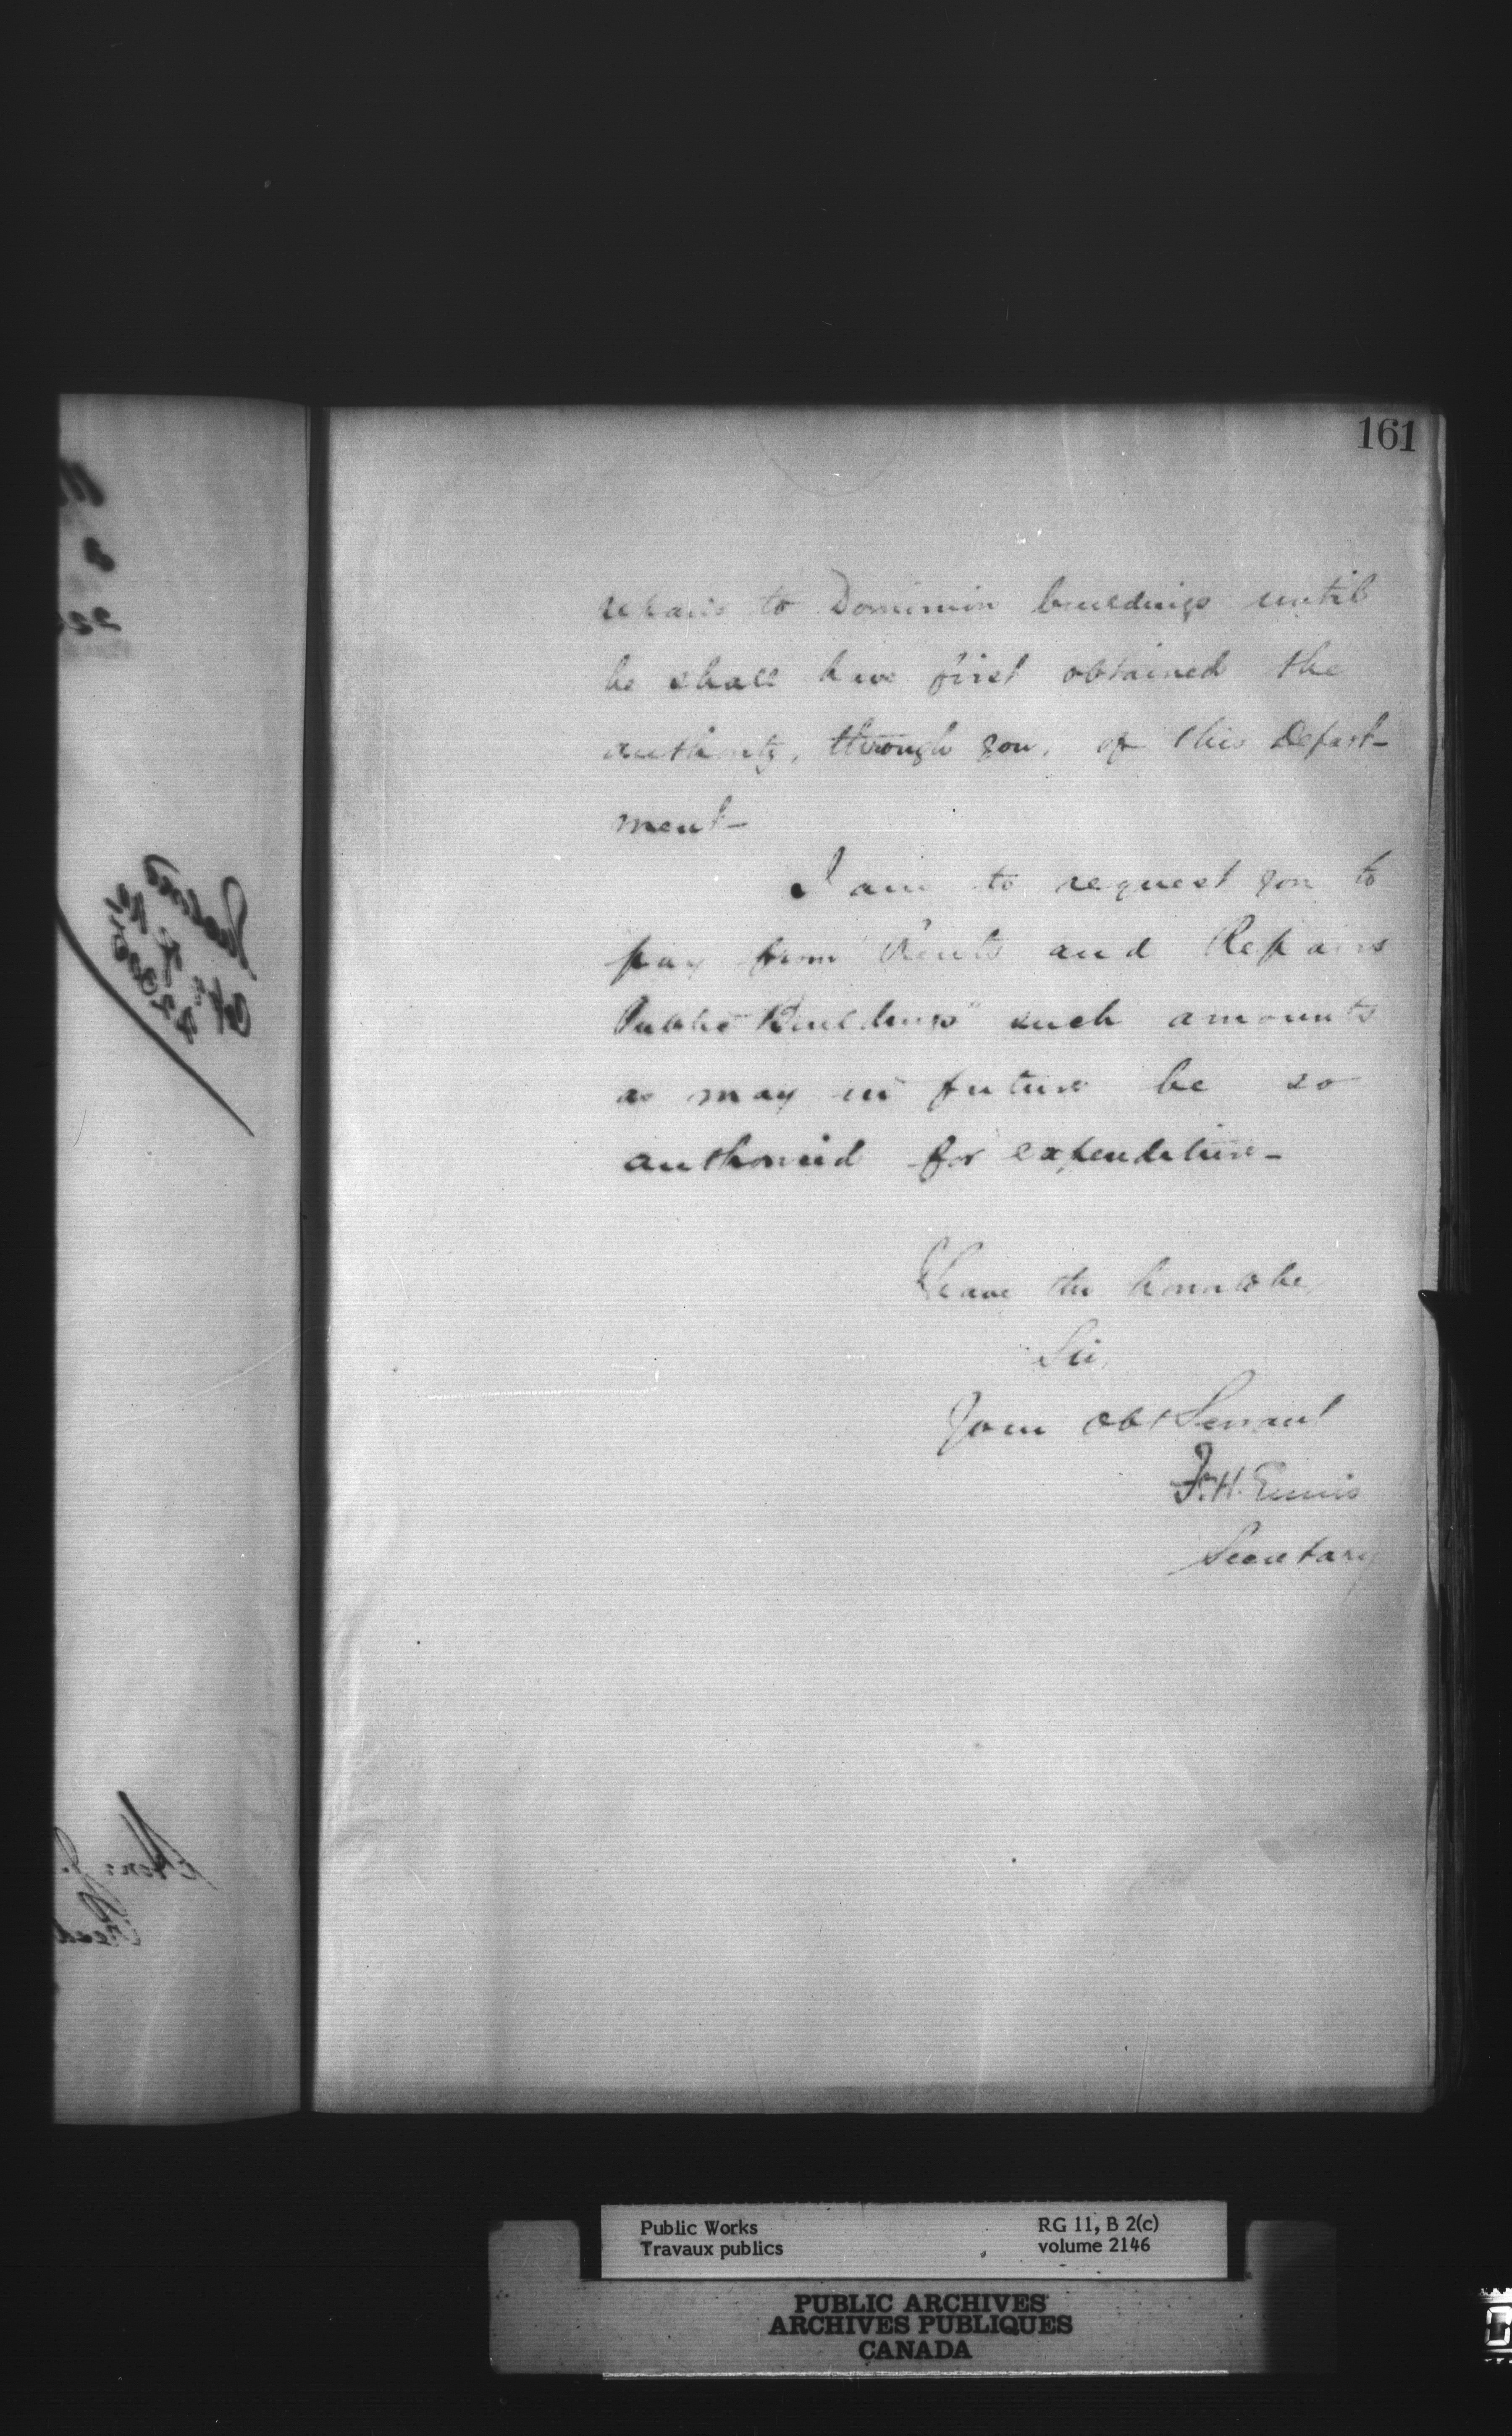 161
repairs to Dominion buildings until
he shall have first obtained the
authority, through you, of this Depart-
ment-
I am to request you to
pay from "Rents and Repairs
Public Buildings" such amounts
as may in future be so
authorized for expenditure-
I have the honor to be,
Sir,
Your obt Servant
F. H. Ennis
Secretary
Public Works
Travaux publics
RG 11, B 2(c)
volume 2146
PUBLIC ARCHIVES
ARCHIVES PUBLIQUES
CANADA